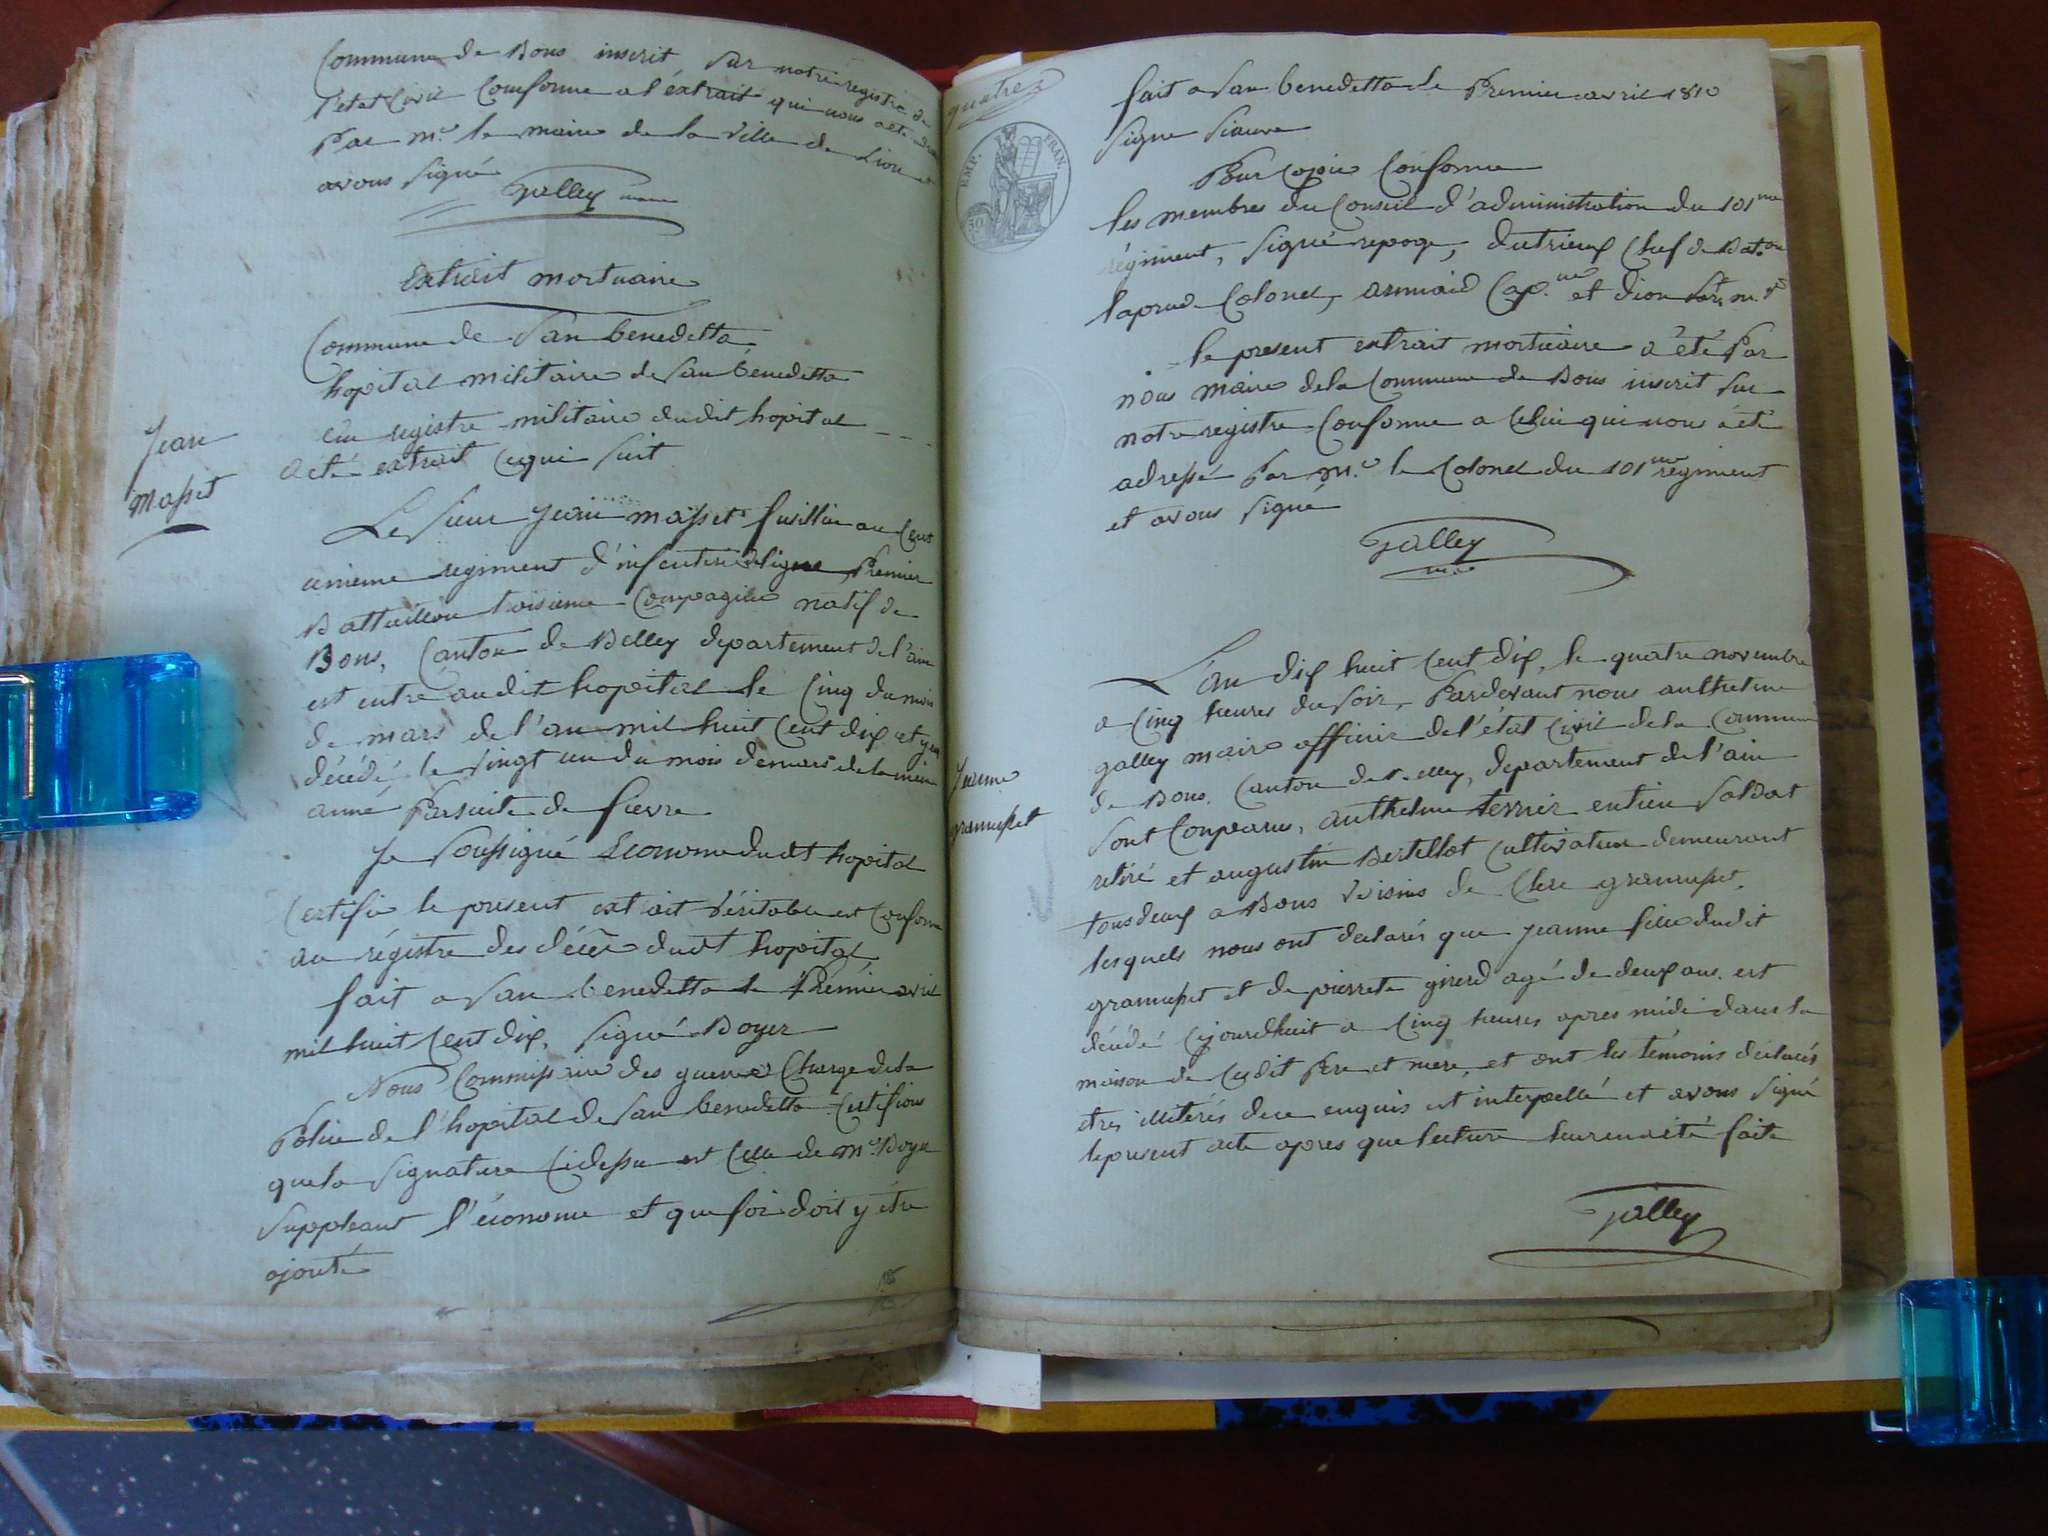 Commune de Bons inscrit sur notre registre de
l'etat Civil Conforme a l'éxtrait qui nous a ete
Par mr. le maire de la ville de Lion et
avons signé
Galley maire
Extrait mortuaire
Commune de San benedetto
hopital militaire de San bénedetto
Jean
Masset
du registre militaire dudit hopital
a été extrait ce qui suit
Le Sieur Jean masset fusillier au Cent
unieme regiment d'infenterie de ligne, Premier
Battaillon troisieme Compagnie natif de
Bons, Canton de Belley departement de l'ain
est entré audit hopital le Cinq du mois
de mars de l'an mil huit Cent dix et y est
décédé le vingt un du mois de mars de la meme
anné Par suite de fievre
Je Soussigné Econome dudt hopital
Certifie le present extrait véritable et Conforme
au régistre des décès dudt hopital
fait a San benedetto le Prémier avril
mil huit Cent dix, signé Boyer
Nous Commissaire des guerres Chargé de la
Police de l'hopital de San benedetto Certifions
que la signature Cidessu est Celle de mr. Boyer
Suppleant l'économe et que foi doit y étre
ajouté
quatre
EMP. FRAN.
fait a San benedetto le Premier avril 1810
signe
Pour Copie Conforme
les membres du Conseil d'administration du 101me
régiment, signé repoge, dutrieux Chef de Baton
laprud Colonel, armaid Cap.ne et dion
le present extrait mortuaire a été Par
nous maire de la Commune de Bons inscrit sur
notre registre Conforme a Celui qui nous a été
adressé Par mr. le Colonel du 101me régiment
et avons signé
Galley
mre
Jeanne
gramusset
L'an dix huit Cent dix, le quatre novembre
a Cinq heures du soir, Pardevant nous anthelme
galley maire officier de l'état Civil de la Commune
de Bons, Canton de Belley, departement de l'ain
sont Comparus, anthelme terrier entien soldat
retiré et augustin Bertellot Cultivateur demeurant
tous deux a Bons voisins de Clere gramusset,
lesquels nous ont declarés que jeanne fille dudit
gramusset et de pierrete girerd agé de deux ans, est
décédé Cejourdhuit a Cinq heures apres midi dans la
maison de Cesdit Pere et mere, et ont les témoins déclarés
etres illiterés de ce enquis et interpellé et avons signé
le present acte apres que lecture leur en a été faite
Galley